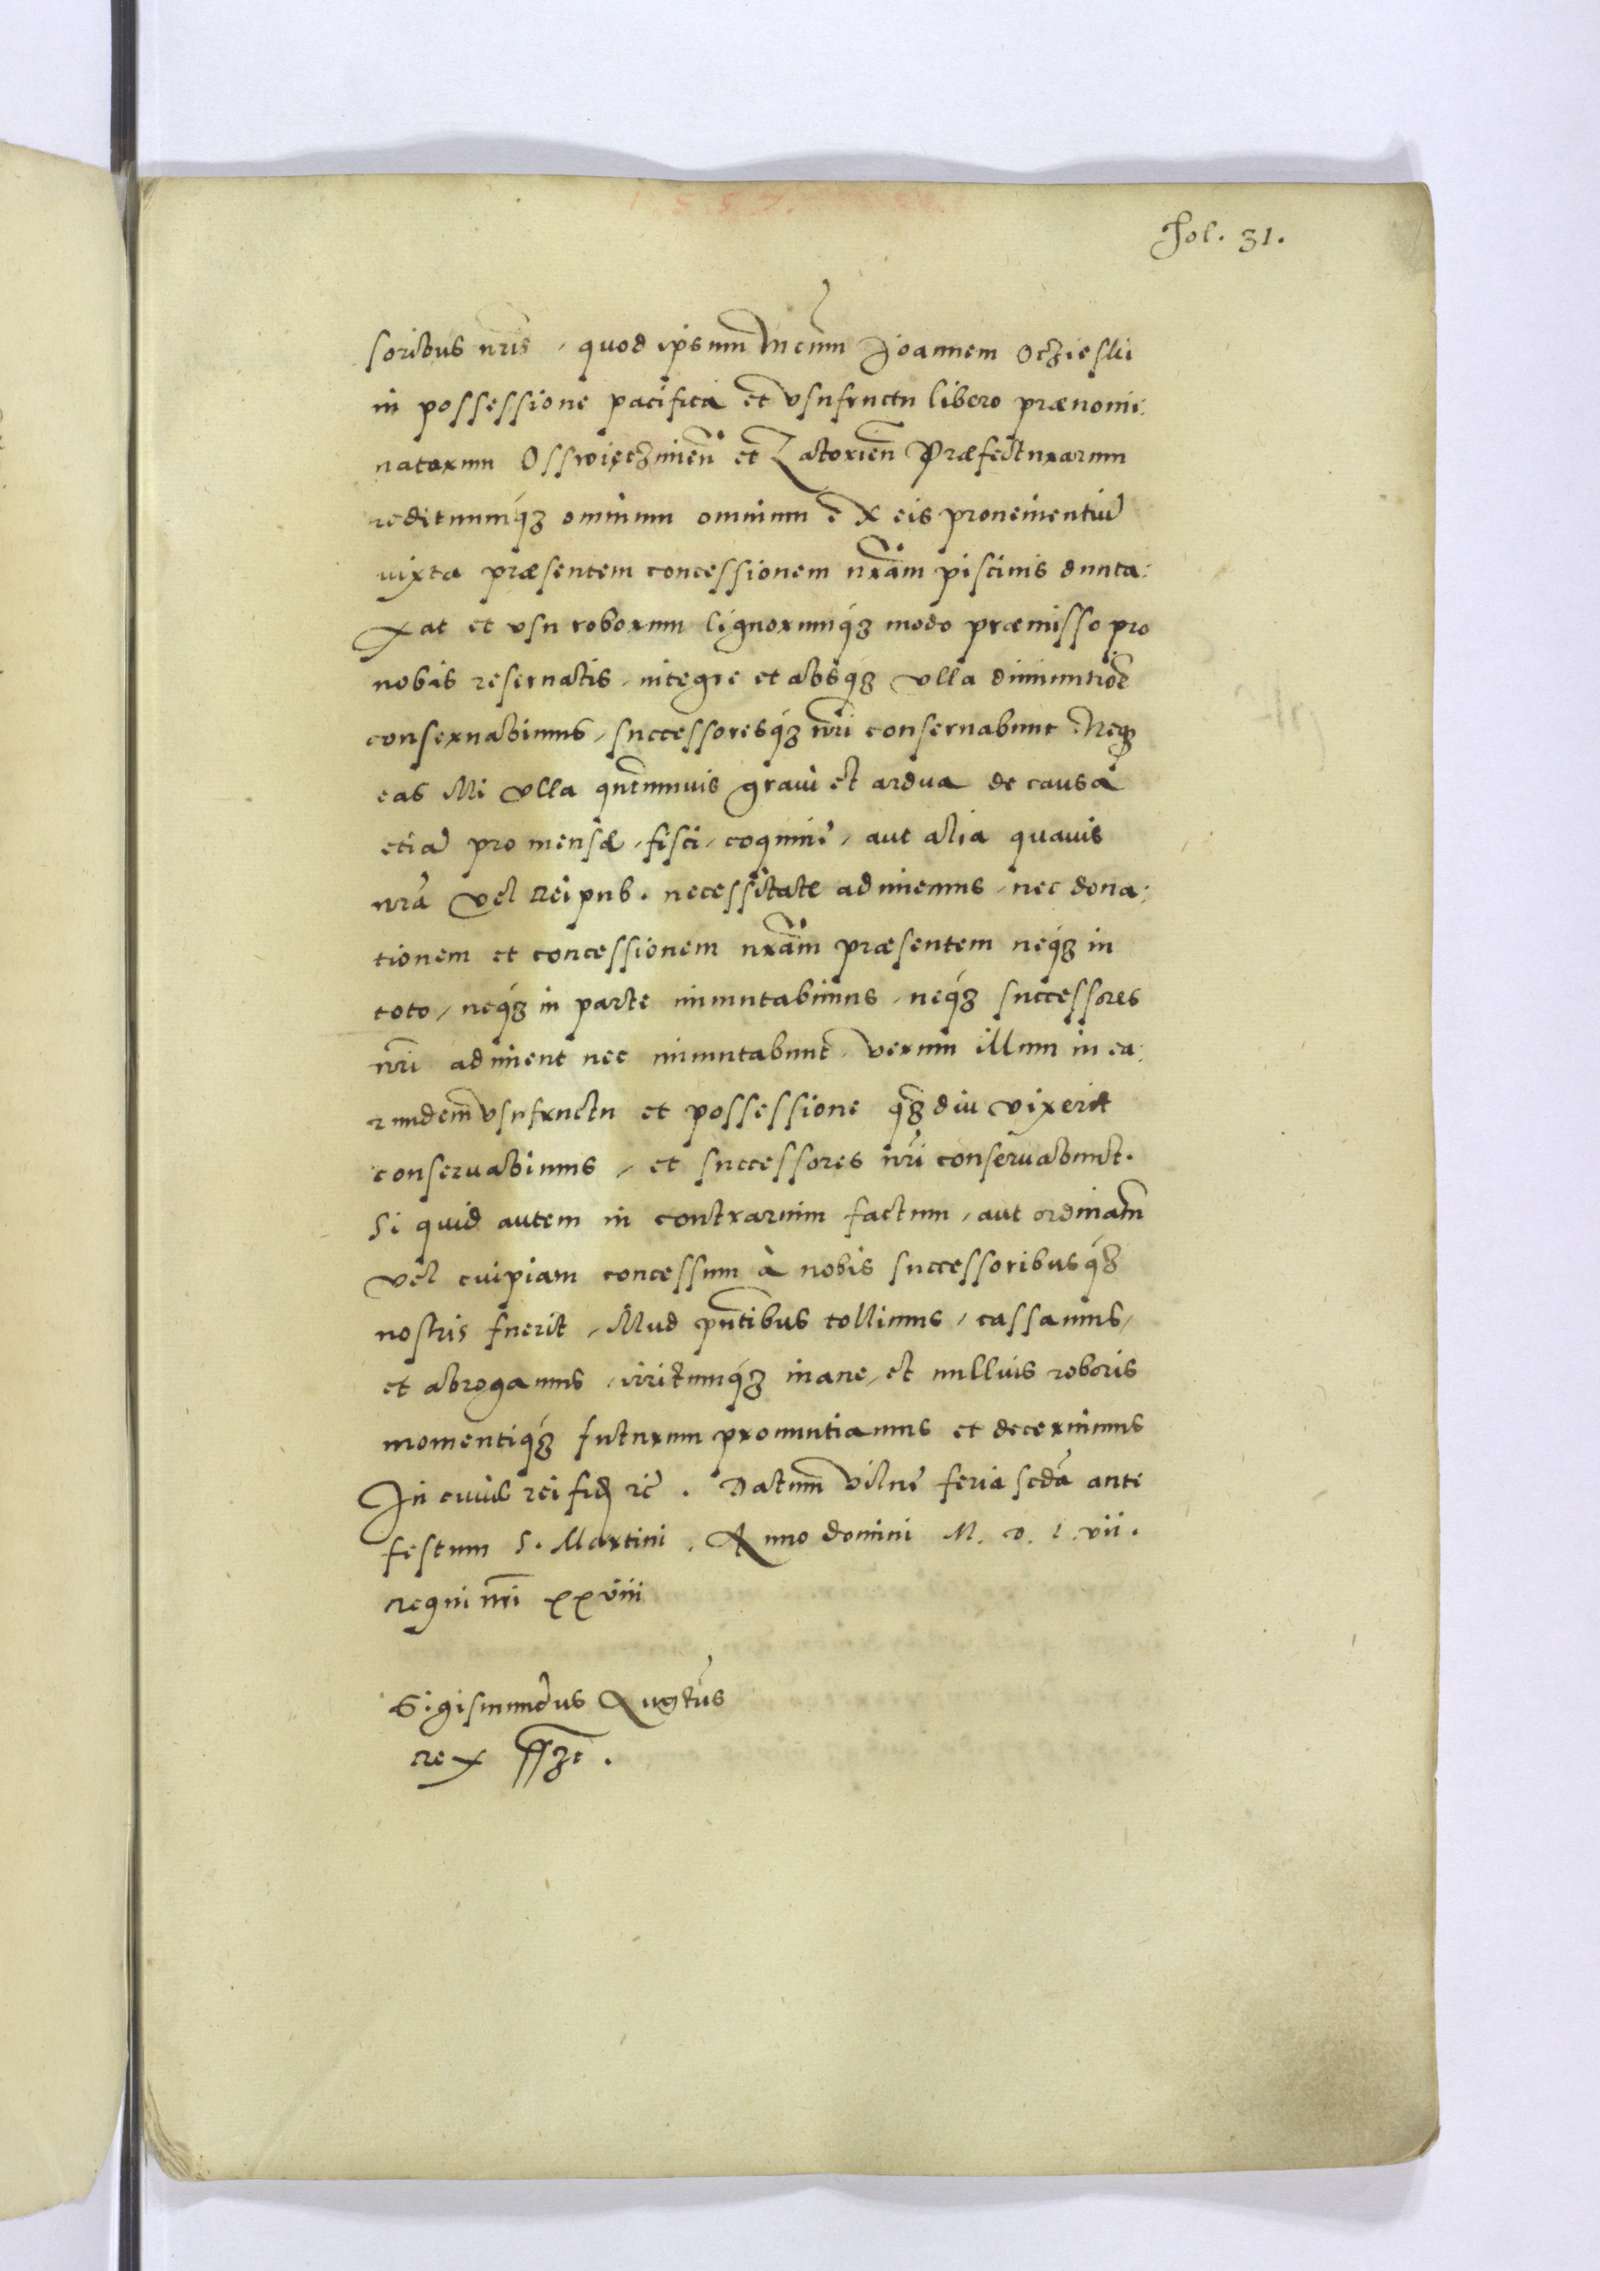 Fol. 31.
soribus nr̃is, quod ipsum M̃cum Joannem Oczieski
in possessione pacifica et vsufructu libero prænomi:
natorum Osswięczimen̄ et Zatorien̄ Præfecturarum
redituumq́ꝫ omnium omnium ex eis prouenientiũ
iuxta præsentem concessionem nr̃am piscinis dunta:
xat et vsu roborum lignorumq́ꝫ modo præmisso pro
nobis reseruatis, integre et absq́ꝫ vlla diminutiõe
conseruabimus, successoresq́ꝫ nr̃i conseruabunt. Neqꝫ
eas illi vlla qñtumuis graui et ardua de causa
etiã pro mensæ, fisci, coquinę, aut alia quauis
nr̃a vel Reipub. necessitate adimemus, nec dona:
tionem et concessionem nr̃am præsentem neq́ꝫ in
toto, neq́ꝫ in parte immutabimus, neq́ꝫ successores
nr̃i adiment nec immutabunt, verum illum in ea:
rundem vsufructu et possessione qꝫdiu vixerit
conseruabimus, et successores nr̃i conseruabunt.
Si quid autem in contrarium factum, aut ordinatm̃
vel cuipiam concessum à nobis successoribusq́ꝫ
nostris fuerit, illud pñtibus tollimus, cassamus,
et abrogamus, irritumq́ꝫ inane, et nullius roboris
momentiq́ꝫ futurum pronuntiamus et decernimus
In cuius rei fid̃ &c̃. Datum Vilnę feria scd̃a ante
festum S. Martini. Anno domini M. D. L. vii.
Regni nr̃i xxviii
Sigismundus Augtũs
Rex sszt.